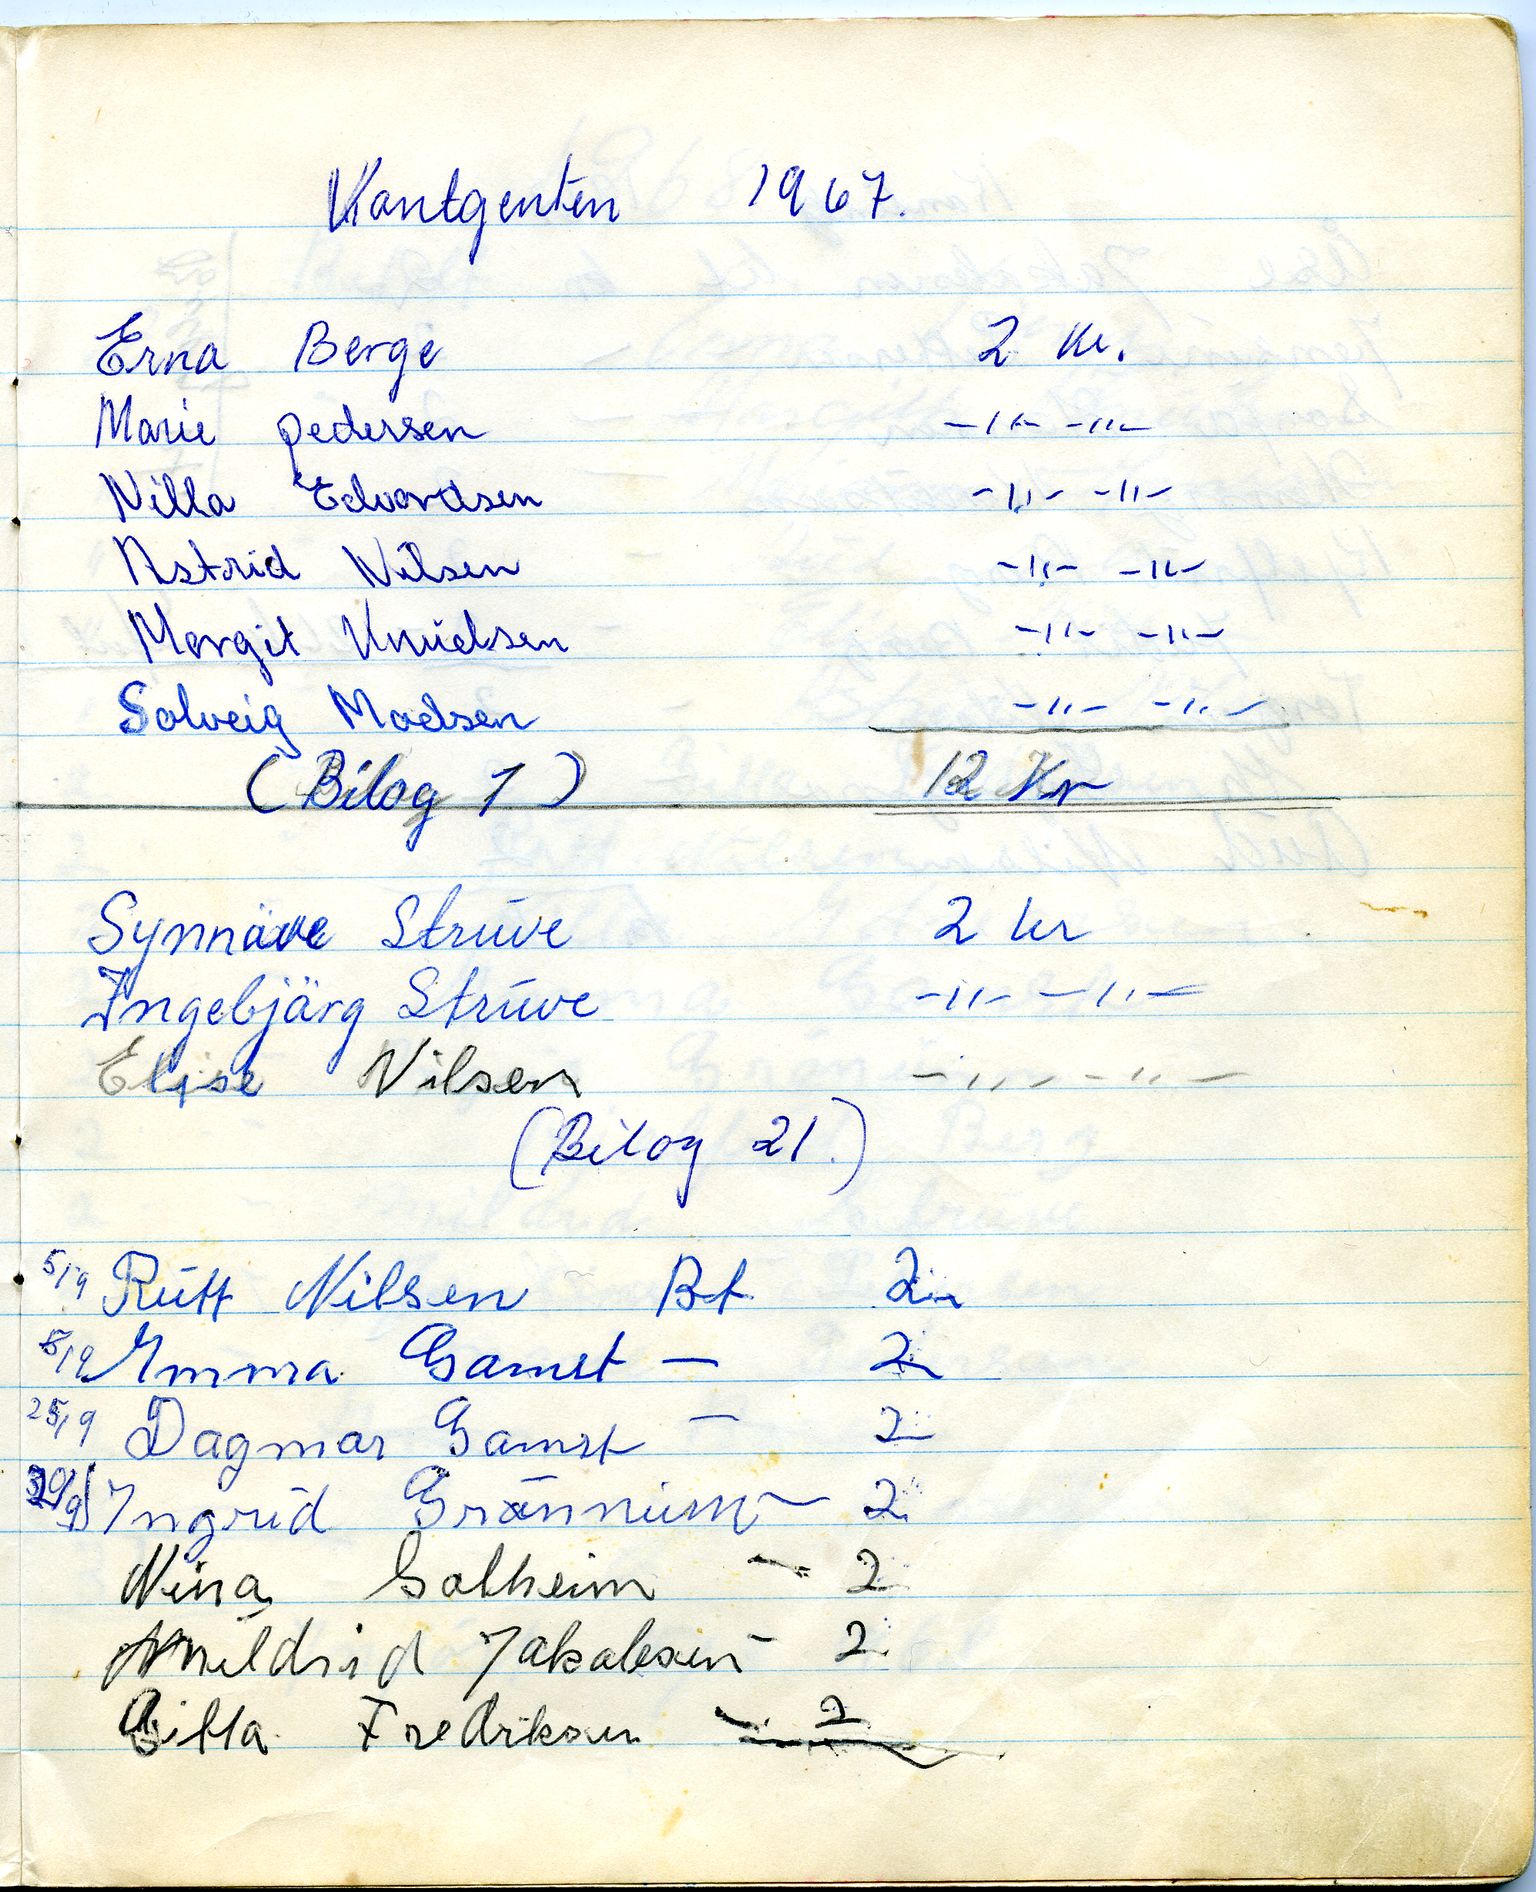 Kontgenten 1967.
Erna Berge 2 kr.
Marie pedersen -〃- -〃-
Nilla Edvardsen -〃- -〃-
Astrid Nilsen -〃- -〃-
Margit Knudsen -〃- -〃-
Solveig Madsen -〃- -〃-
(Bilag 1) 12 Kr
Synnäve Strüve 2 kr
Ingebjärg Strüve -〃- -〃-
Elise Nilsen -〃- -〃-
(Bilag 21.)
5/9 Rütt Nilsen Bt 2
5/9 Emma Gamst — 2
25/9 Dagmar Gamst — 2
Ingrid Grännüm — 2
Nina Solheim — 2
Mildrid Jakobsen — 2
Fredriksen — 2